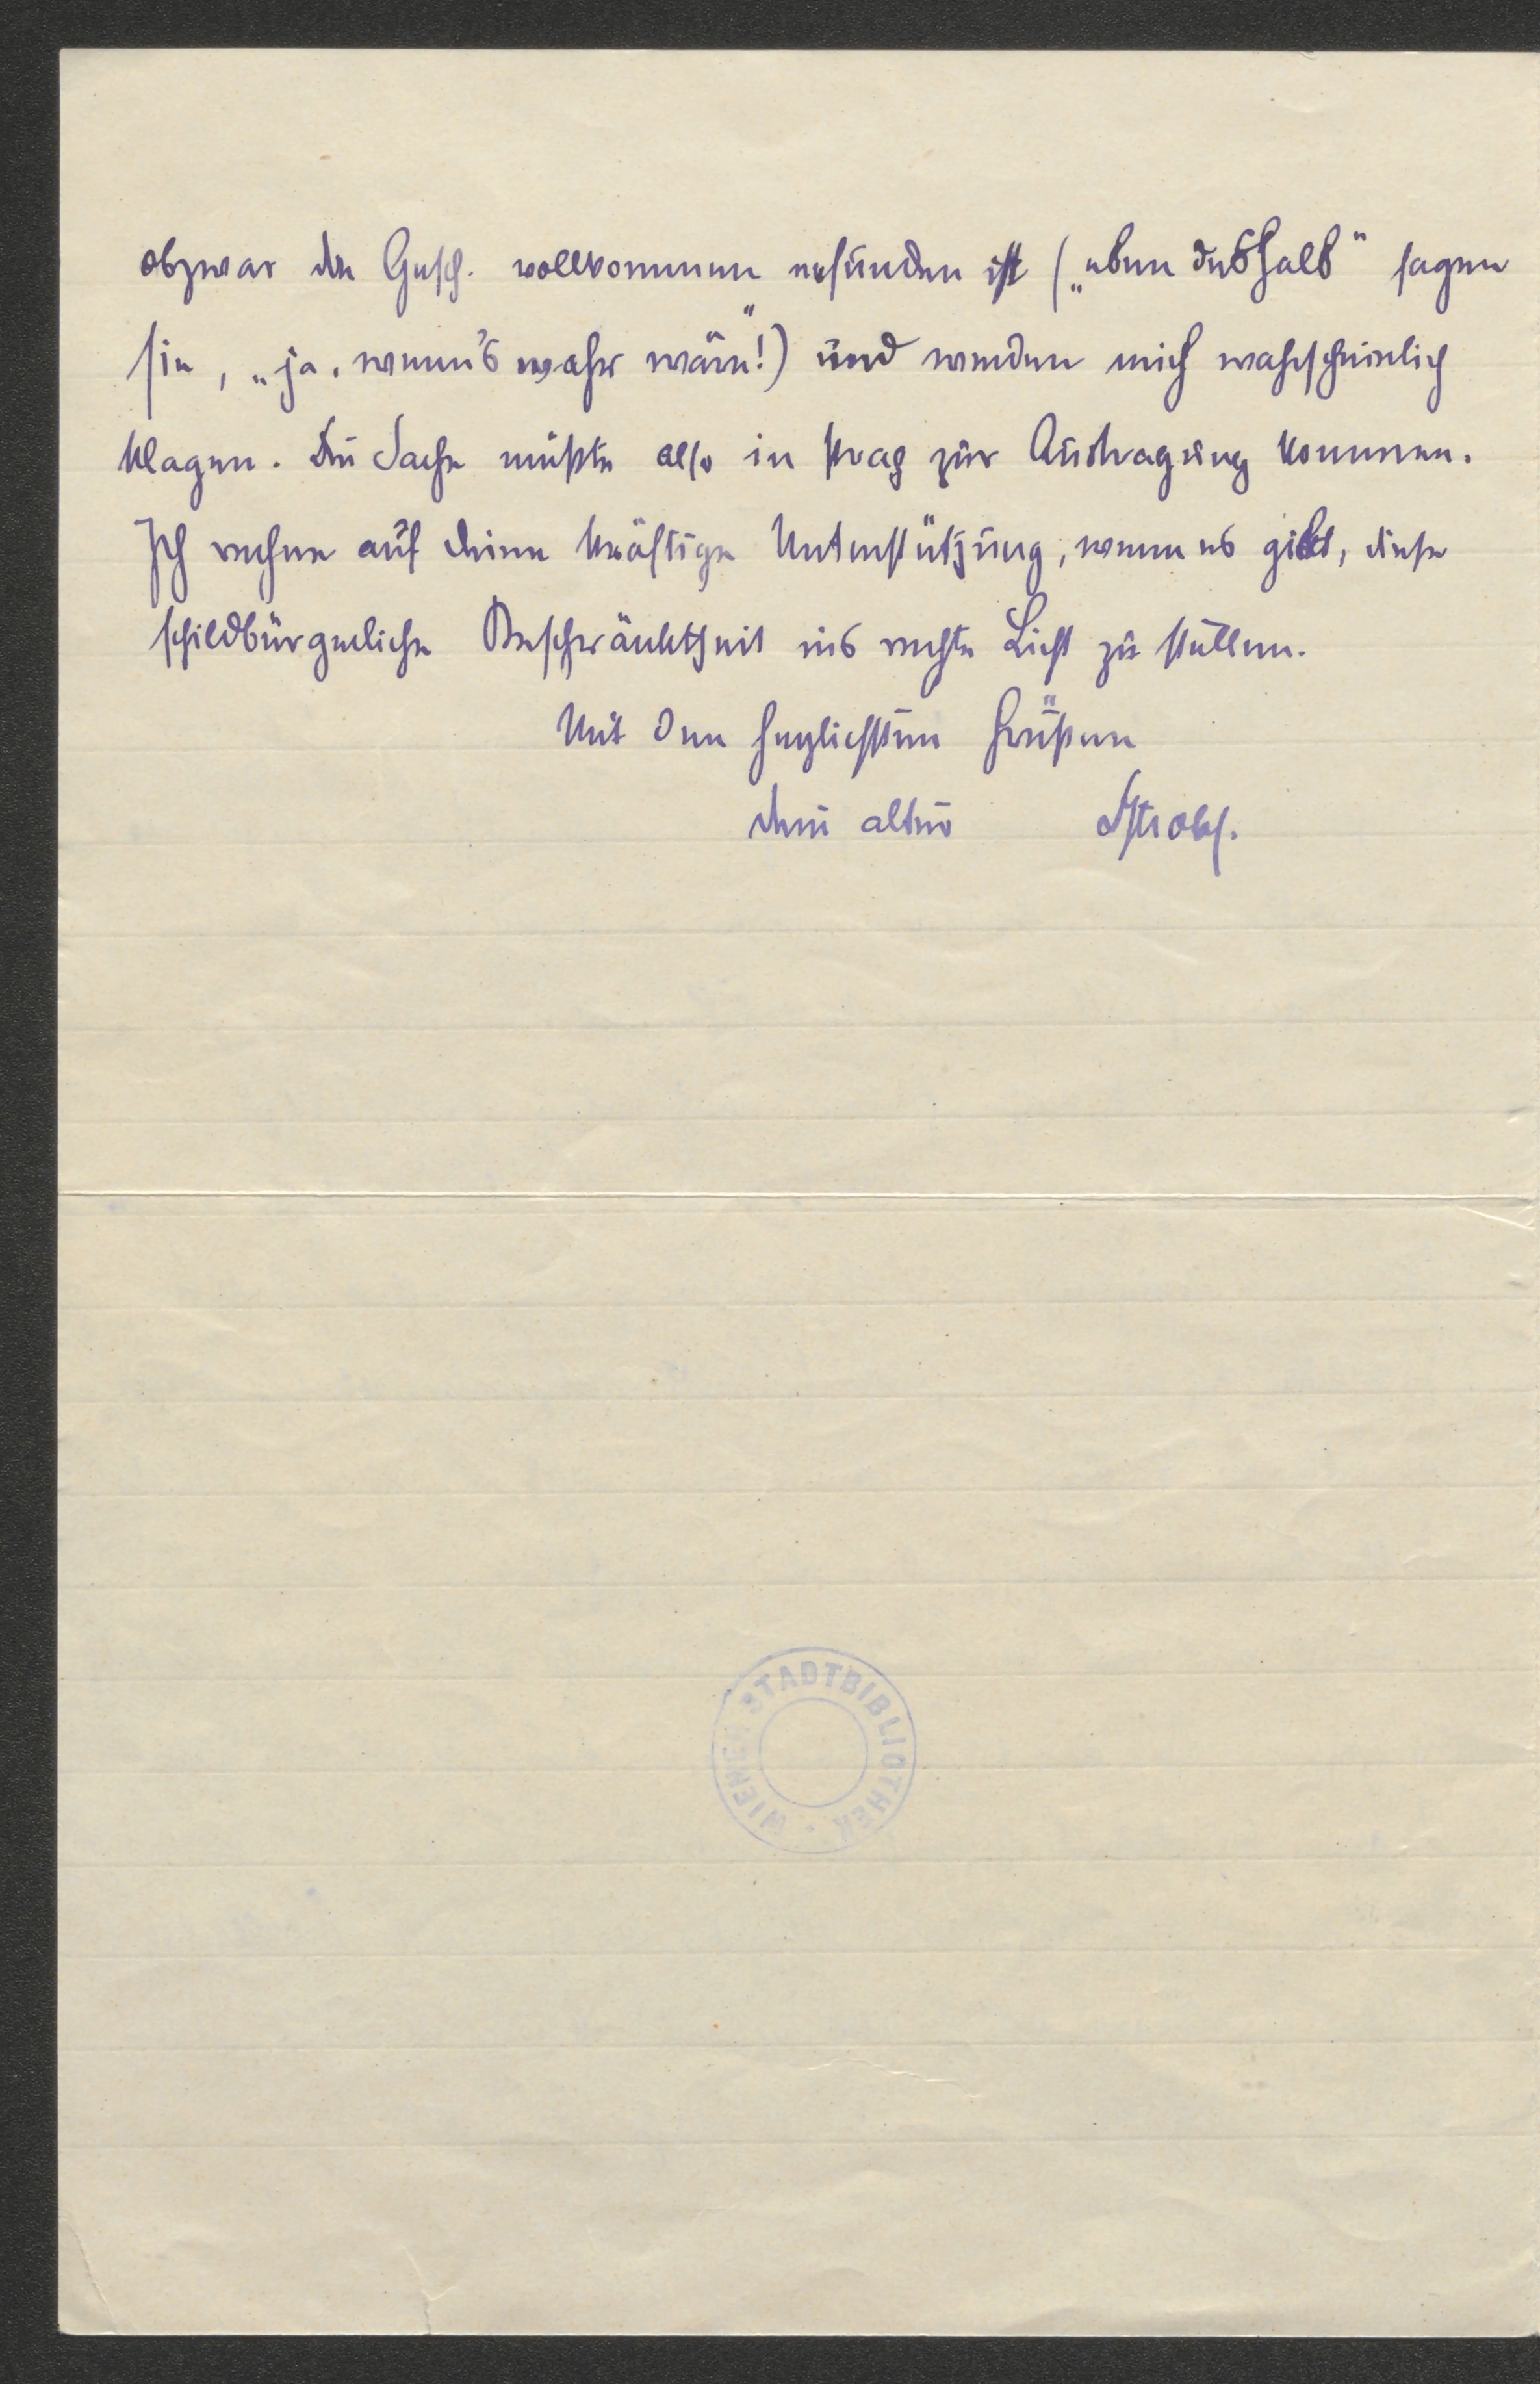 obzwar die Gesch. vollkommen erfunden ist („eben deshalb“ sagen
sie, „ja, wenn's wahr wäre“!) und werden mich wahrscheinlich
klagen. Die Sache müßte also in Prag zur Austragung kommen.
Ich rechne auf deine kräftige Unterstützung, wenn es gilt, diese
schildbürgerliche Beschränktheit ins rechte Licht zu stellen.
Mit den herzlichsten Grüßen
dein alter Strobl.
WIENER STADTBIBLIOTHEK